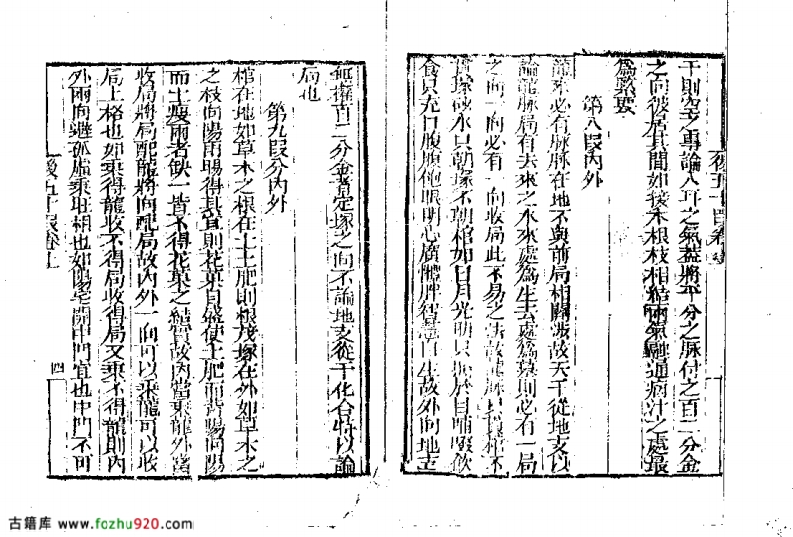 干則空之專論入耳之氣茲將平分之脉付之百二分金
之向彼居其間如接木根枝相結兩氣融通病汁之處最
爲緊要
第八段內外
龍來必有脉脉在地不與前局相關涉故天干從地支以
論龍脉局有去來之水來處爲生去處爲墓則必有一局
之向一向必有一向收局此不易之法故
塚 水只朝塚不朝棺如日月光明只 目晡啜飲
食只充口腹腹飽眼明心廣體胖智慧自生故外向地支
無權百二分金者定塚之向不論地支從干化合特以論
局也
第九段分內外
棺在地如草木之根在土土肥則根茂塚在外如草木之
之枝向陽雨暘得其宜則花菓自盛使土肥而背陽向陽
而土瘦兩者缺一皆不得花菓之結實故內當乘龍外當
收局將局配龍將向配局故內外一向可以乘龍可以收
局上格也如乘得龍收不得局收得局又乘不得龍則內
外兩向避孤虛乘旺相也如陽宅開中門宜也中門不可
後五十段卷上
四
古籍库 www.fozhu920.com